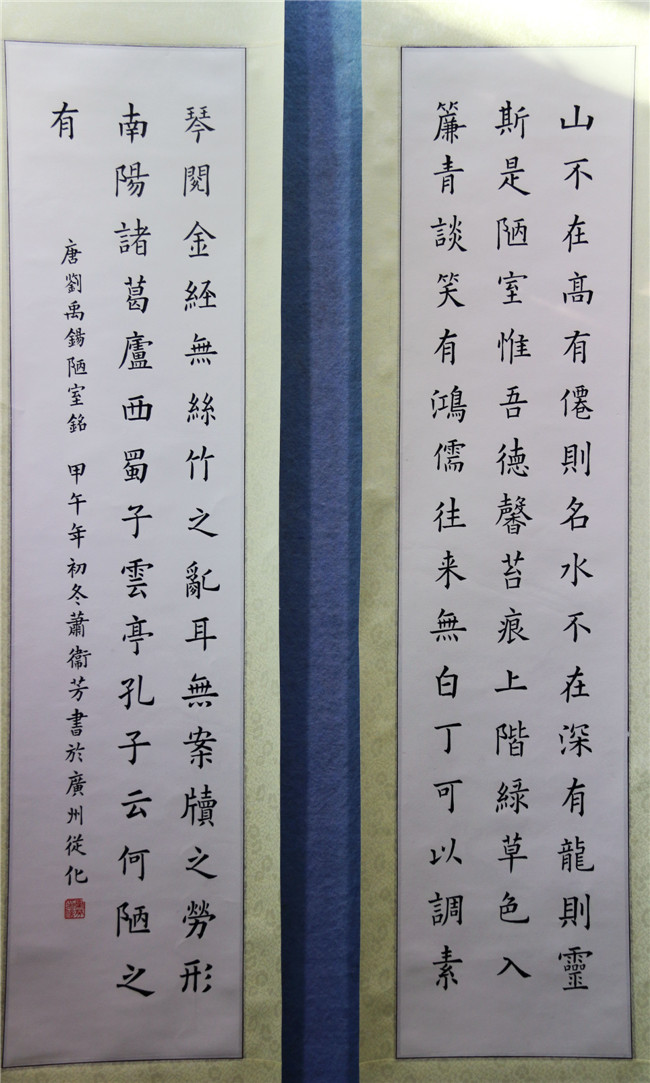 山不在高有僊則名水不在深有龍則靈
斯是陋室惟吾德馨苔痕上階緑草色入
簾青談笑有鴻儒往来無白丁可以調素
琴閱金経無絲竹之亂耳無案牘之勞形
南陽諸葛廬西蜀子雲亭孔子云何陋之
有
唐劉禹錫陋室銘 甲午年初冬蕭衞芳書於廣州從化